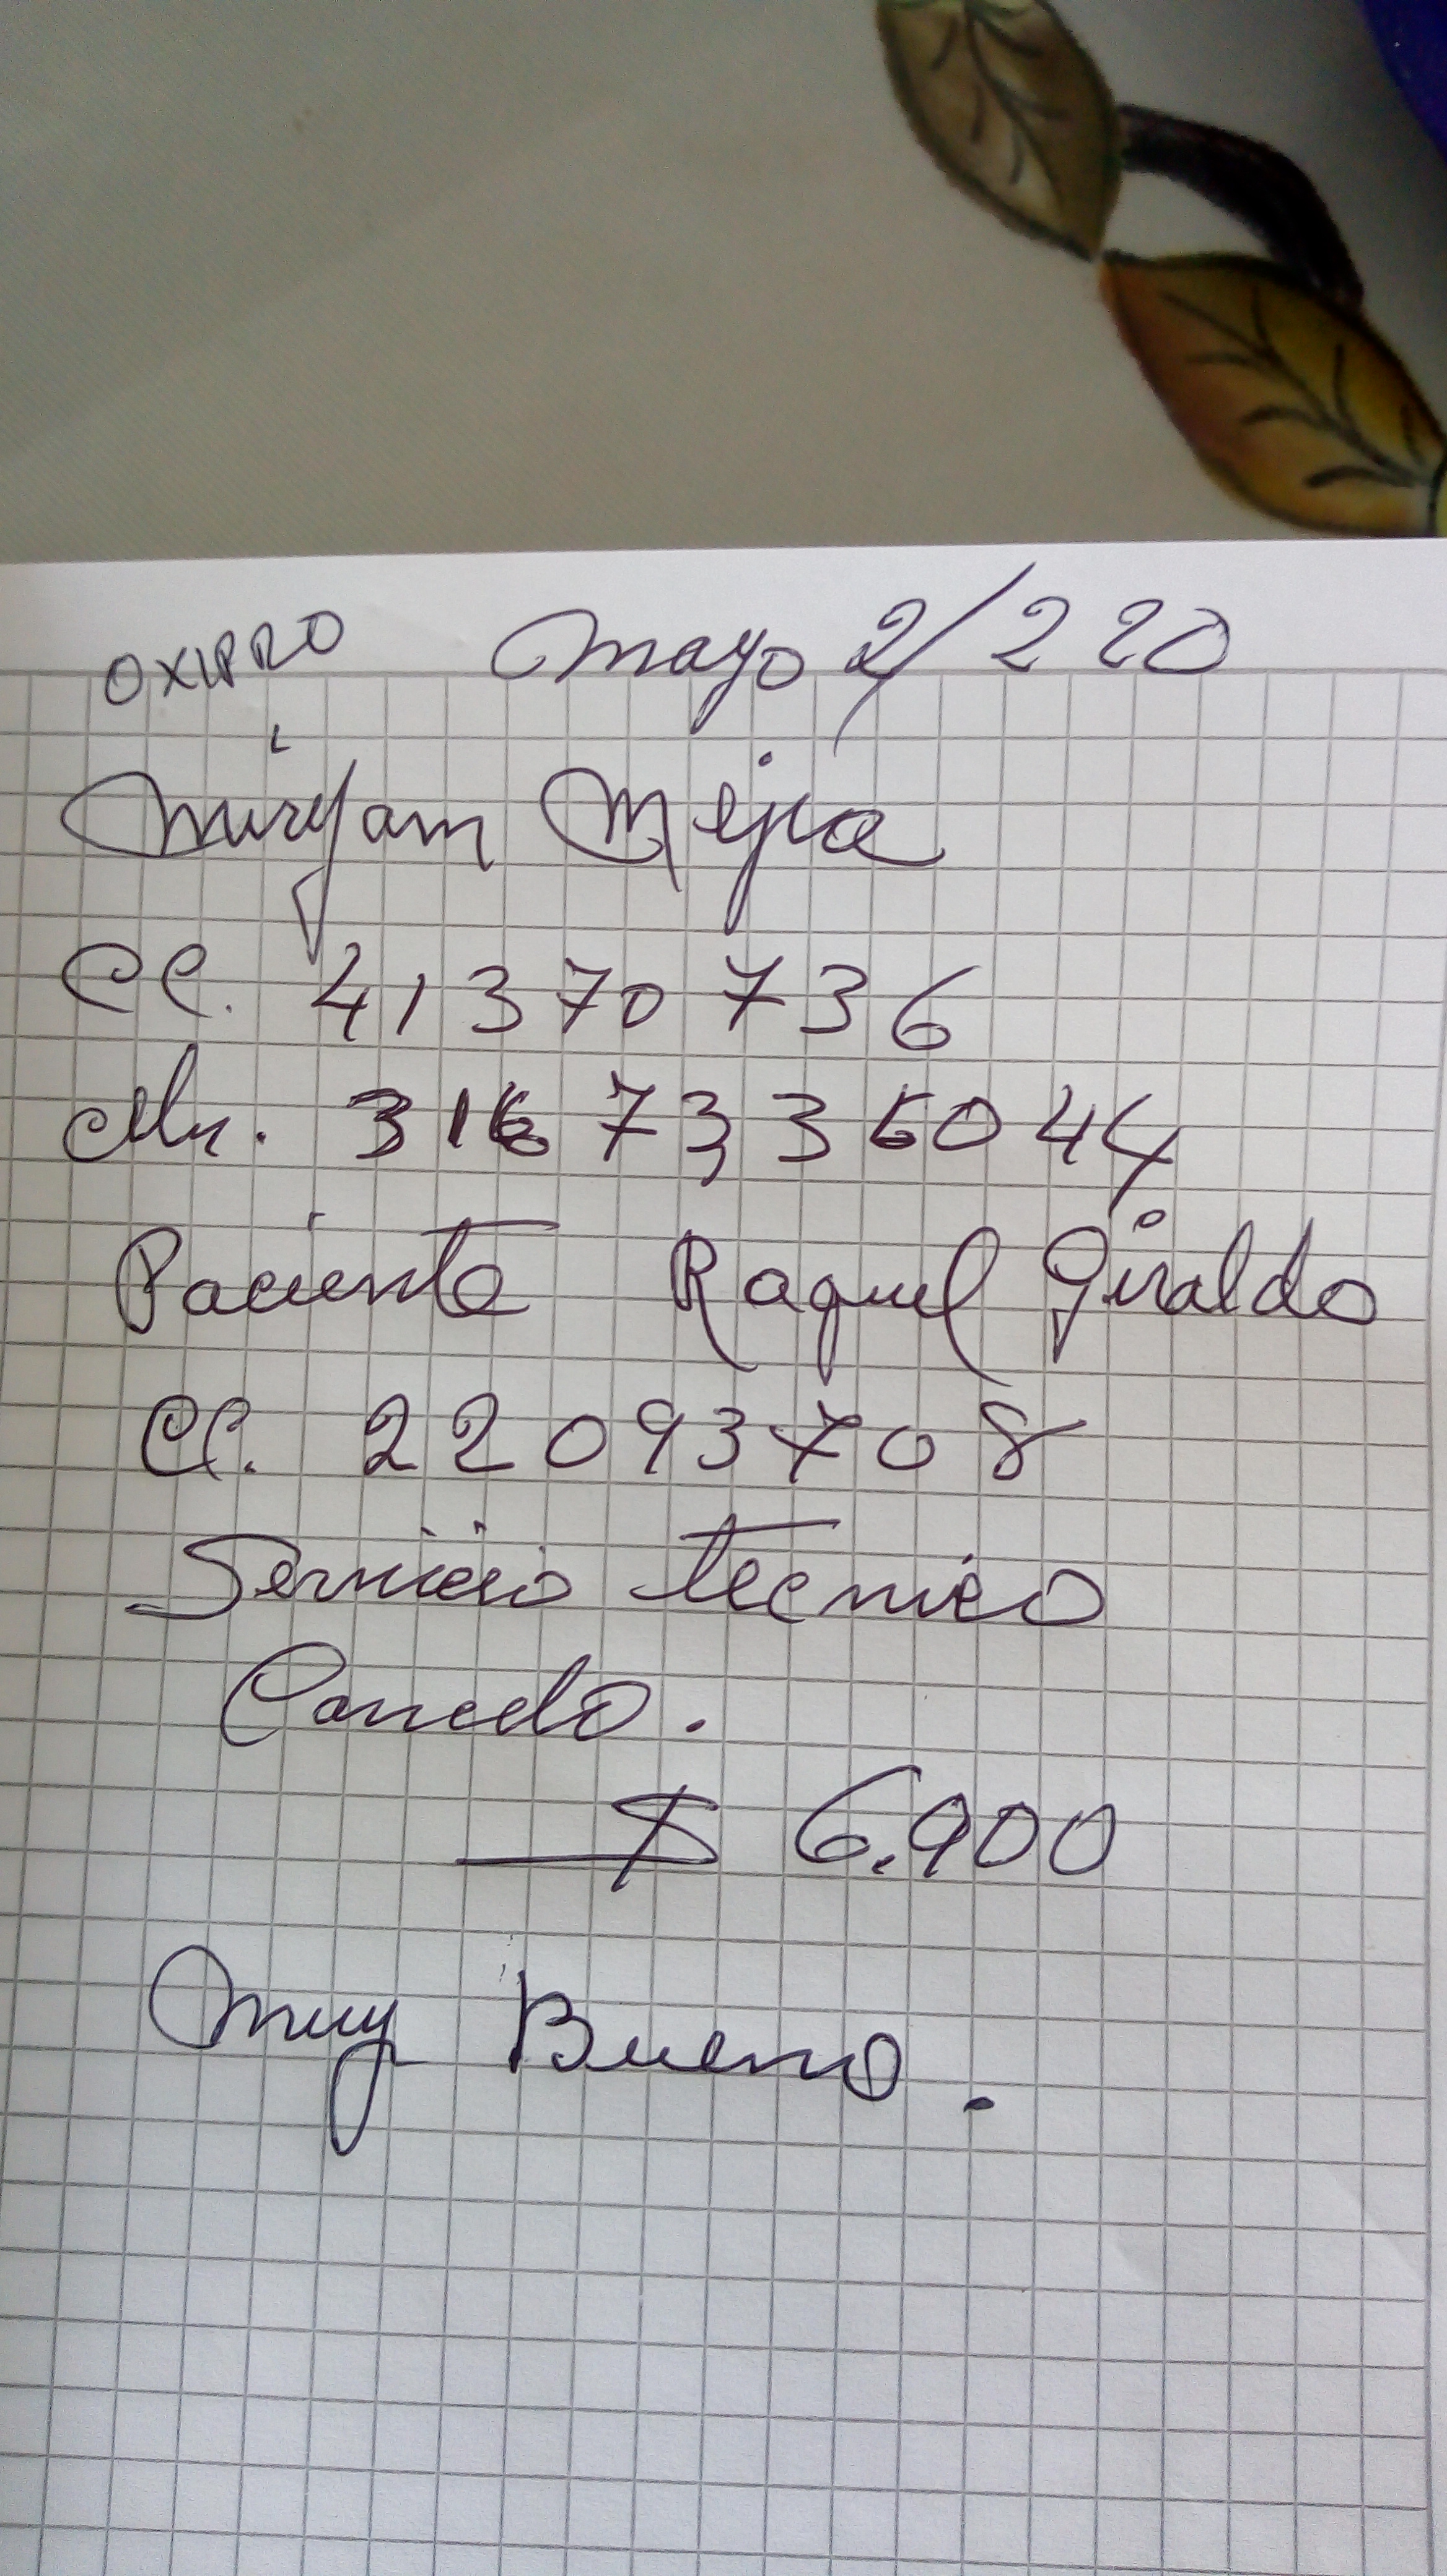 OXIPRO Mayo 2/220
Miryam Mejia
CC. 41370736
Clr. 316 733 5044
Paciente Raquel Giraldo
CC. 22093708
Servicio tecnico
Cancelo.
$ 6.900
Muy Bueno.